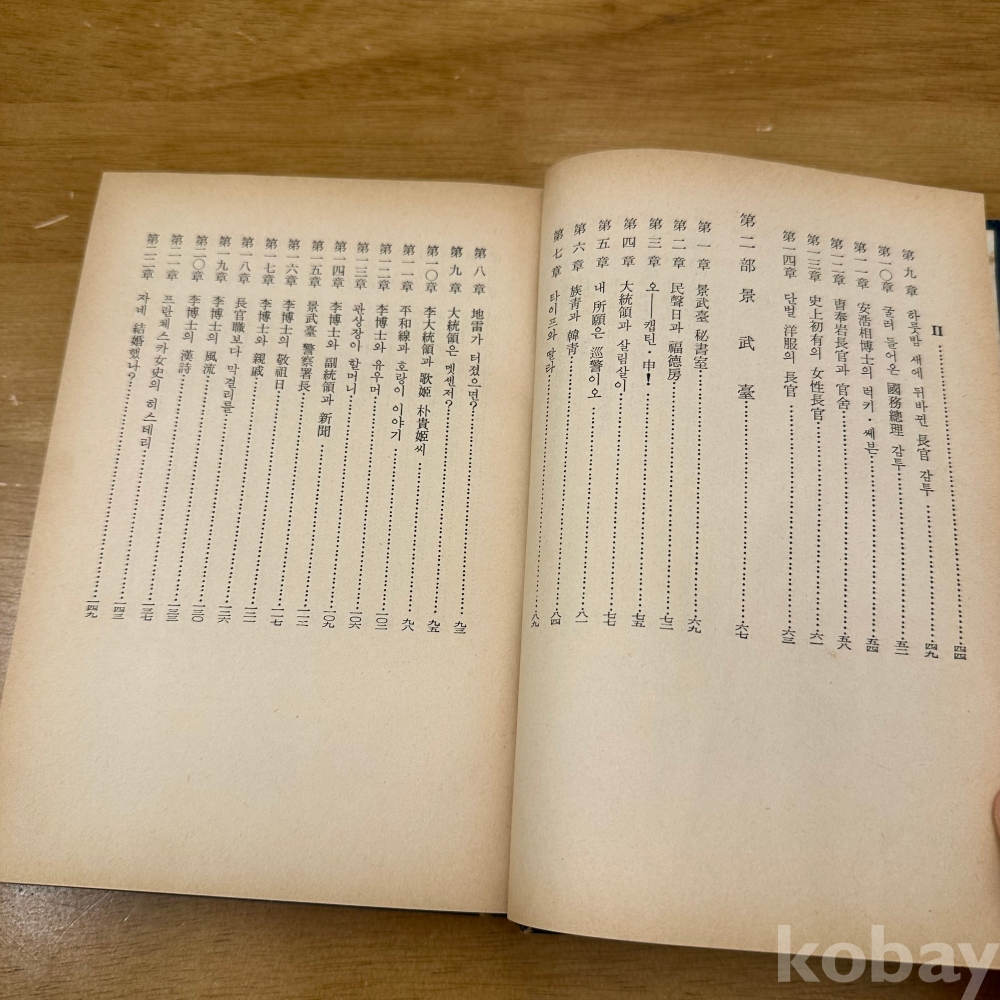 II 四四
第九章 하룻밤 새에 뒤바뀐 長官 감투 四九
第一〇章 굴러 들어온 國務總理 감투 五二
第一一章 安浩相博士의 럭키・쎄븐 五四
第一二章 曺奉岩長官과 官舍 五八
第一三章 史上初有의 女性長官 六一
第一四章 단벌 洋服의 長官 六三
第二部 景武臺 六七
第一章 景武臺 秘書室 六九
第二章 民聲日과 福德房 七三
第三章 오——캡틴・申! 七五
第四章 大統領과 살림살이 七七
第五章 내 所願은 巡警이오 八一
第六章 族靑과 韓靑 八四
第七章 타이프와 딸라 八九
第八章 地雷가 터졌으면? 九三
第九章 大統領은 멧센저? 九五
第一〇章 李大統領과 歌姬 朴貴姬씨 九八
第一一章 平和線과 호랑이 이야기 一〇二
第一二章 李博士와 유우머 一〇六
第一三章 관상장아 할머니 一〇九
第一四章 李博士와 副統領과 新聞 一一二
第一五章 景武臺 警察署長 一一七
第一六章 李博士의 敬祖日 一二二
第一七章 李博士와 親戚 一二六
第一八章 長官職보다 막걸리를 一三〇
第一九章 李博士의 風流 一三三
第二〇章 李博士의 漢詩 一三七
第二一章 프란체스카女史의 히스테리 一四三
第二二章 자네 結婚했나? 一四九
kobay